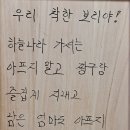 우리 착한 보리야!
하늘나라 가서는
아프지 말고 짱구랑
즐겁게 지내고
남은 엄마도 아프지